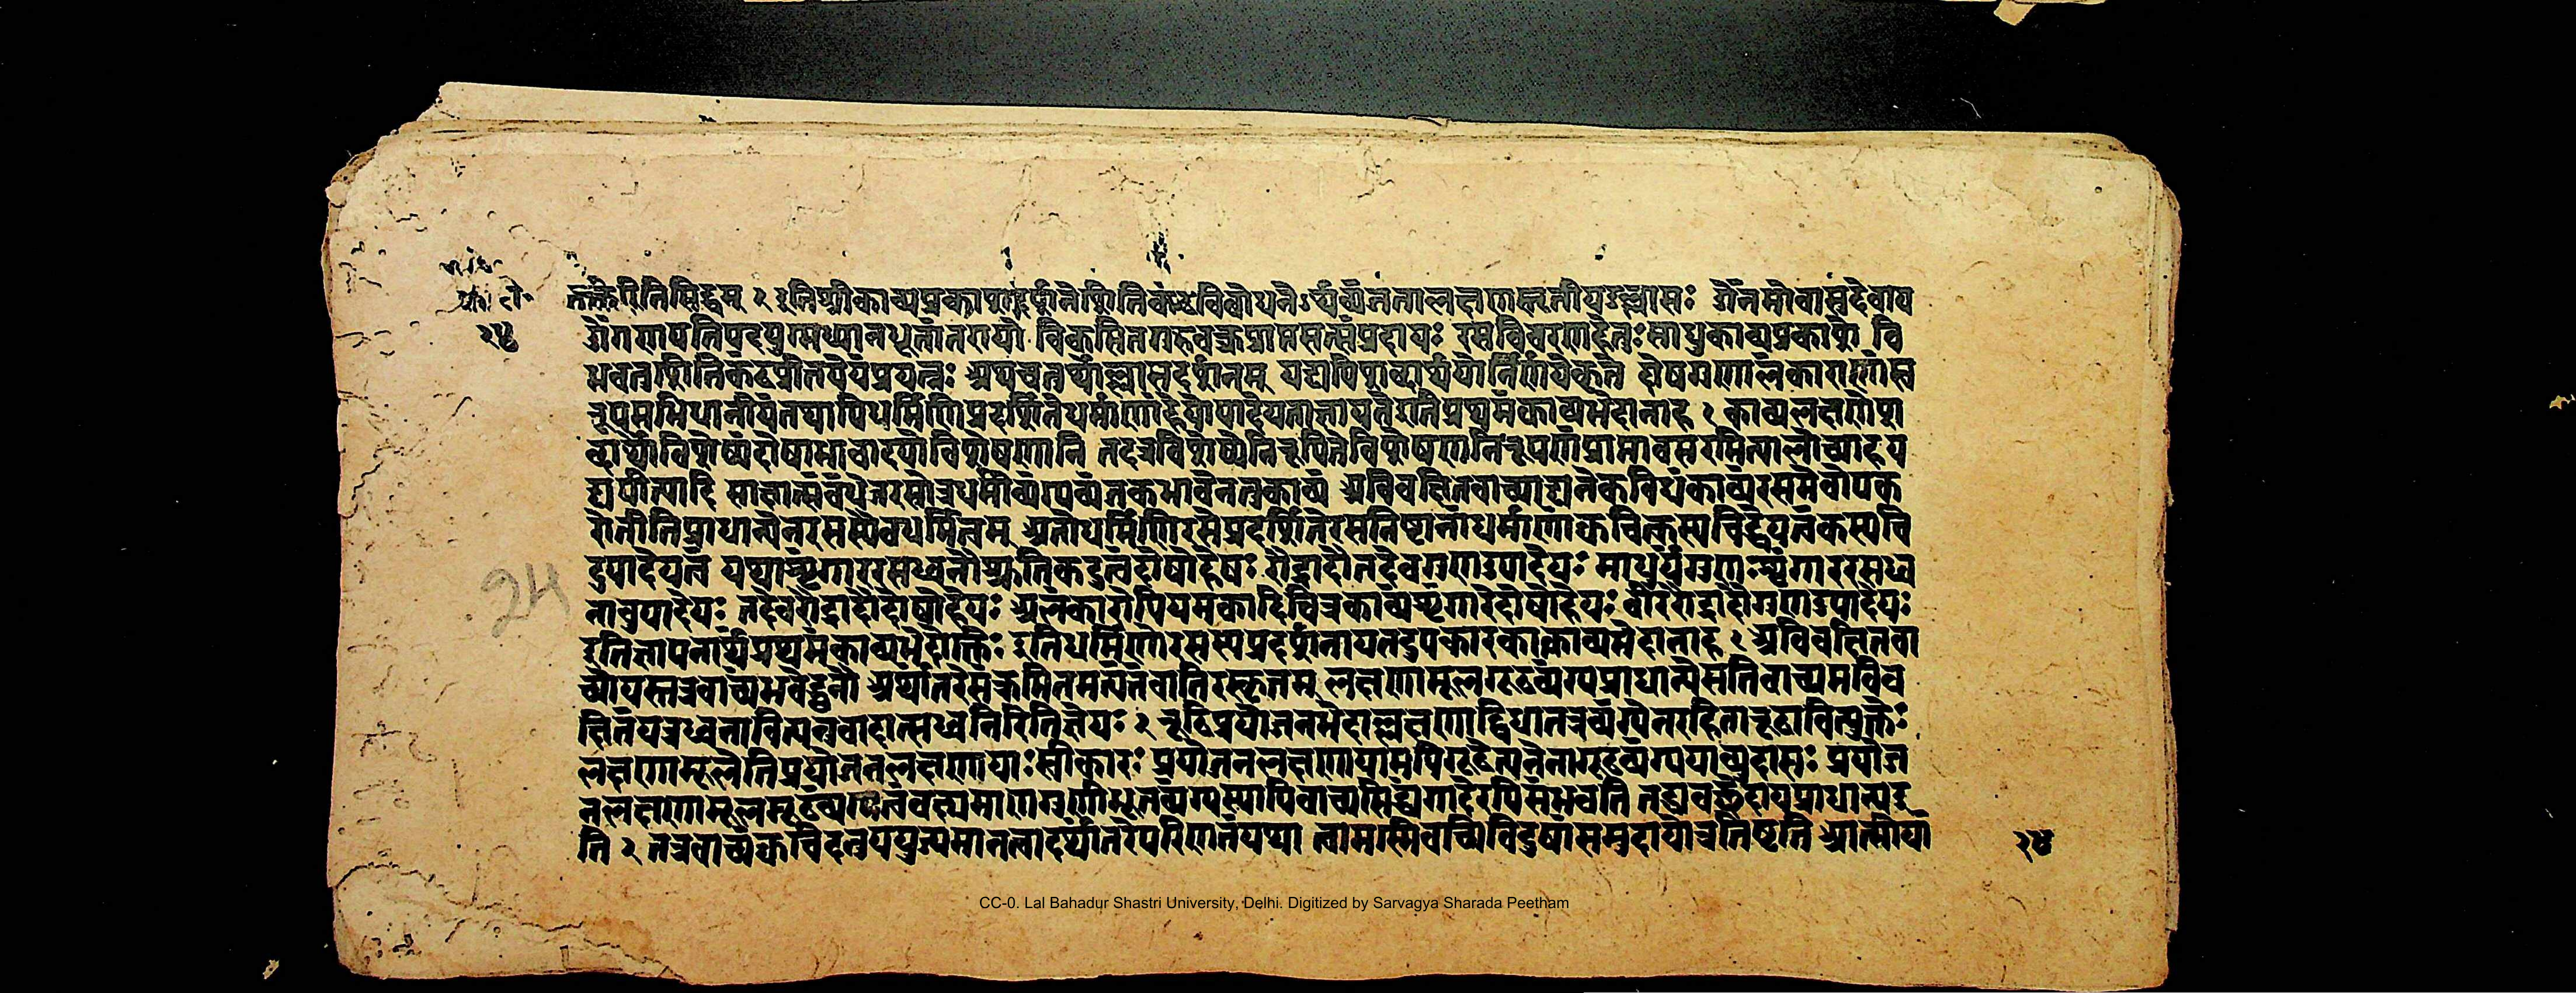 का॰ नि॰
तर्क्तैरितिसिद्धम् १ इतिश्रीकाव्यप्रकाशदर्शनेशितिकंठविबोधनेऽर्थव्यंजनतालक्षणस्तृतीयउल्लासः ॐनमोवासुदेवाय
२५ ॐगणपतिपदयुग्मध्यानधूतांतरायो विकसितगुरुवक्त्रप्राप्तसत्संप्रदायः रसविवरणहेतुःसाधुकाव्यप्रकाशं वि
भवतुशितिकंठप्रीतयेयंप्रयत्नः अथचतुर्थोल्लासदर्शनम् यद्यपिशब्दार्थयोर्निर्णयेकृते दोषगुणालंकाराणांस्व
रूपमभिधानीयंतथापिधर्मिणिप्रदर्शितेधर्माणांहेयोपादेयताज्ञायतेइतिप्रथमंकाव्यभेदानाह १ काव्यलक्षणेश
ब्दार्थोविशेष्यंदोषाभावादयोविशेषणानि तदत्रविशेष्येनिरूपितेविशेषणनिरूपणंप्राप्तावसरमित्यालोच्याहय
द्यपीत्यादि साक्षात्संबंधेनरसोत्रधर्मीव्यंग्यव्यंजकभावेनतुकाव्यं अविवक्षितवाच्याद्यनेकविधंकाव्यंरसमेवोपक
रोतीतिप्राधान्येनरसस्यैवधर्मित्वम् अतोधर्मिणिरसेप्रदर्शितेरसनिष्टानांधर्माणांक्वचित्कस्यचिद्धेयत्वंकस्यचि
दुपादेयत्वं यथाशृंगाररसध्वनौश्रुतिकटुत्वंदोषोहेयः रौद्रादौतदेवगुणउपादेयः माधुर्यंगुणःशृंगाररसध्व
नावुपादेयः तदेवरौद्रादौदोषोहेयः अलंकारोपियमकादिचित्रकाव्यंशृंगारेदोषोहेयः वीररौद्रादौगुणउपादेयः
इतिज्ञापनार्थंप्रथमंकाव्यभेदोक्तिः इतिधर्मिणोरसस्यप्रदर्शनायतदुपकारकाकाव्यभेदानाह १ अविवक्षितवा
च्योयस्तत्रवाच्यंभवेद्ध्वनौ अर्थांतरेसंक्रमितमत्यंतंवातिरस्कृतम् लक्षणामूलगूढव्यंग्यप्राधान्येसतिवाच्यमविव
क्षितंयत्रध्वनावित्यनुवादात्सध्वनिरितिज्ञेयः २ रूढिप्रयोजनभेदाल्लक्षणाद्विधातत्रव्यंग्येनरहितारूढावित्युक्तेः
लक्षणामूलेतिप्रयोजनलक्षणायाःस्वीकारः प्रयोजनलक्षणायामपिगूढेत्यनेनागूढव्यंग्ययाव्युदासः प्रयोज
नलक्षणामूलमूढव्यंग्यत्वंवक्ष्यमाणगुणीभूतव्यंग्यस्यापिवाच्यसिद्ध्यंगादेरपिसंभवति तद्व्यवच्छेदायप्राधान्यइ
ति २ तत्रवाच्यंक्वचिदनुपयुज्यमानत्वादर्थांतरेपरिणतंयथा त्वामस्मिवच्मिविदुषांसमुदायोत्रतिष्टति आत्मीयां
२५
25
CC-0. Lal Bahadur Shastri University, Delhi. Digitized by Sarvagya Sharada Peetham